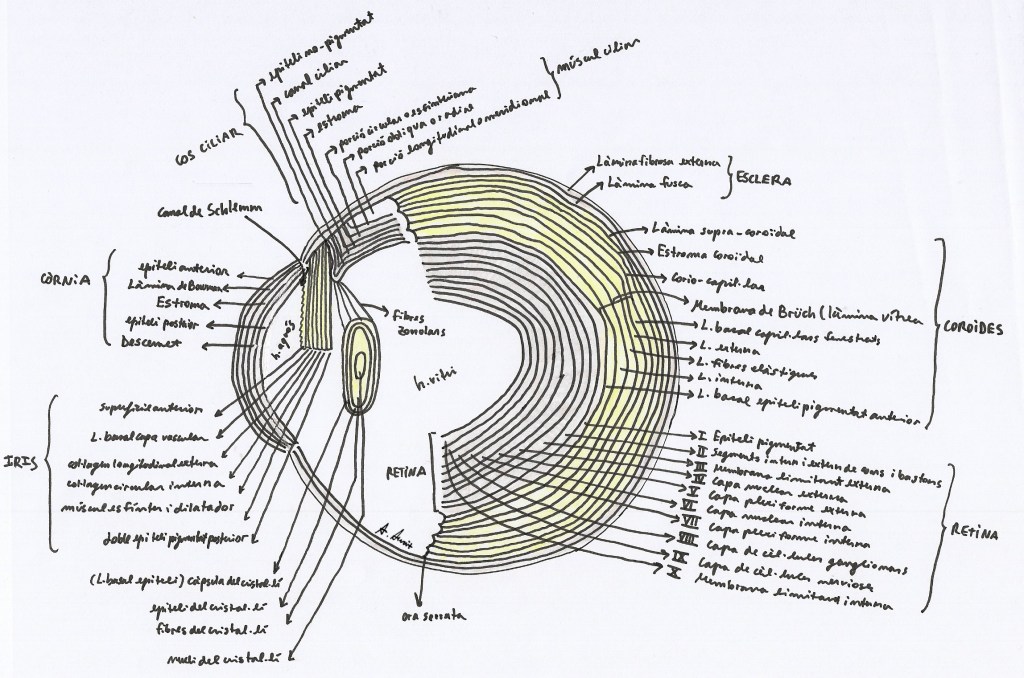 epiteli no-pigmentat
canal ciliar
epiteli pigmentat
estroma
porció circular o esfinteriana
porció obliqua o radial
porció longitudinal o meridional
múscul ciliar
COS CILIAR
Làmina fibrosa externa
Làmina fusca
ESCLERA
canal de Schlemm
Làmina supra-coroïdal
Estroma coroïdal
Corio-capil·lar
Membrana de Brüch (làmina vítrea
L. basal capil·lars fenestrats
L. externa
L. fibres elàstiques
L. interna
L. basal epiteli pigmentat anterior
COROIDES
CÒRNIA
epiteli anterior
Làmina de Bowman
Estroma
epiteli posterior
Descemet
h. aquós
fibres
zonulars
h. vitri
superfície anterior
L. basal capa vascular
colàgen longitudinal externa
colàgen circular interna
múscul esfínter i dilatador
doble epiteli pigmentat posterior
IRIS
RETINA
I Epiteli pigmentat
II Segments intern i extern de cons i bastons
III Membrana limitant externa
IV Capa nuclear externa
V Capa plexiforme externa
VI Capa nuclear interna
VII Capa plexiforme interna
VIII Capa de cèl·lules ganglionars
IX Capa de cèl·lules nervioses
X Membrana limitant interna
RETINA
(L. basal epiteli) càpsula del cristal·lí
epiteli del cristal·lí
fibres del cristal·lí
nucli del cristal·lí
ora serrata